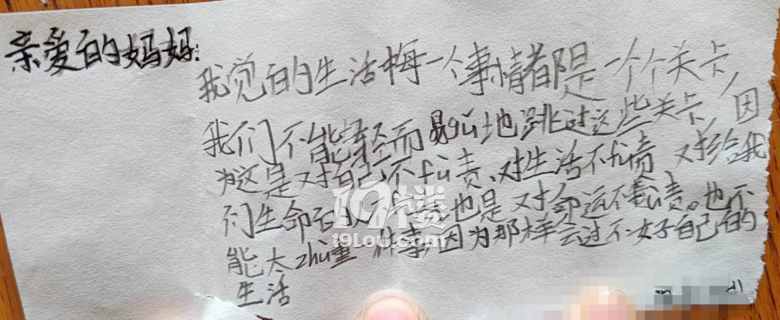 亲爱的妈妈:
我觉的生活梅一个事情都是一个个关卡,
我们不能轻而易gǔ地跳过这些关卡,因
为这是对自己不fù责、对生活不fù责 对给我
们生命的人不 责也是对命运不 责。也不
能太zhù重 件事,因为那样会过不好自己的
生活
19楼
19lou.com